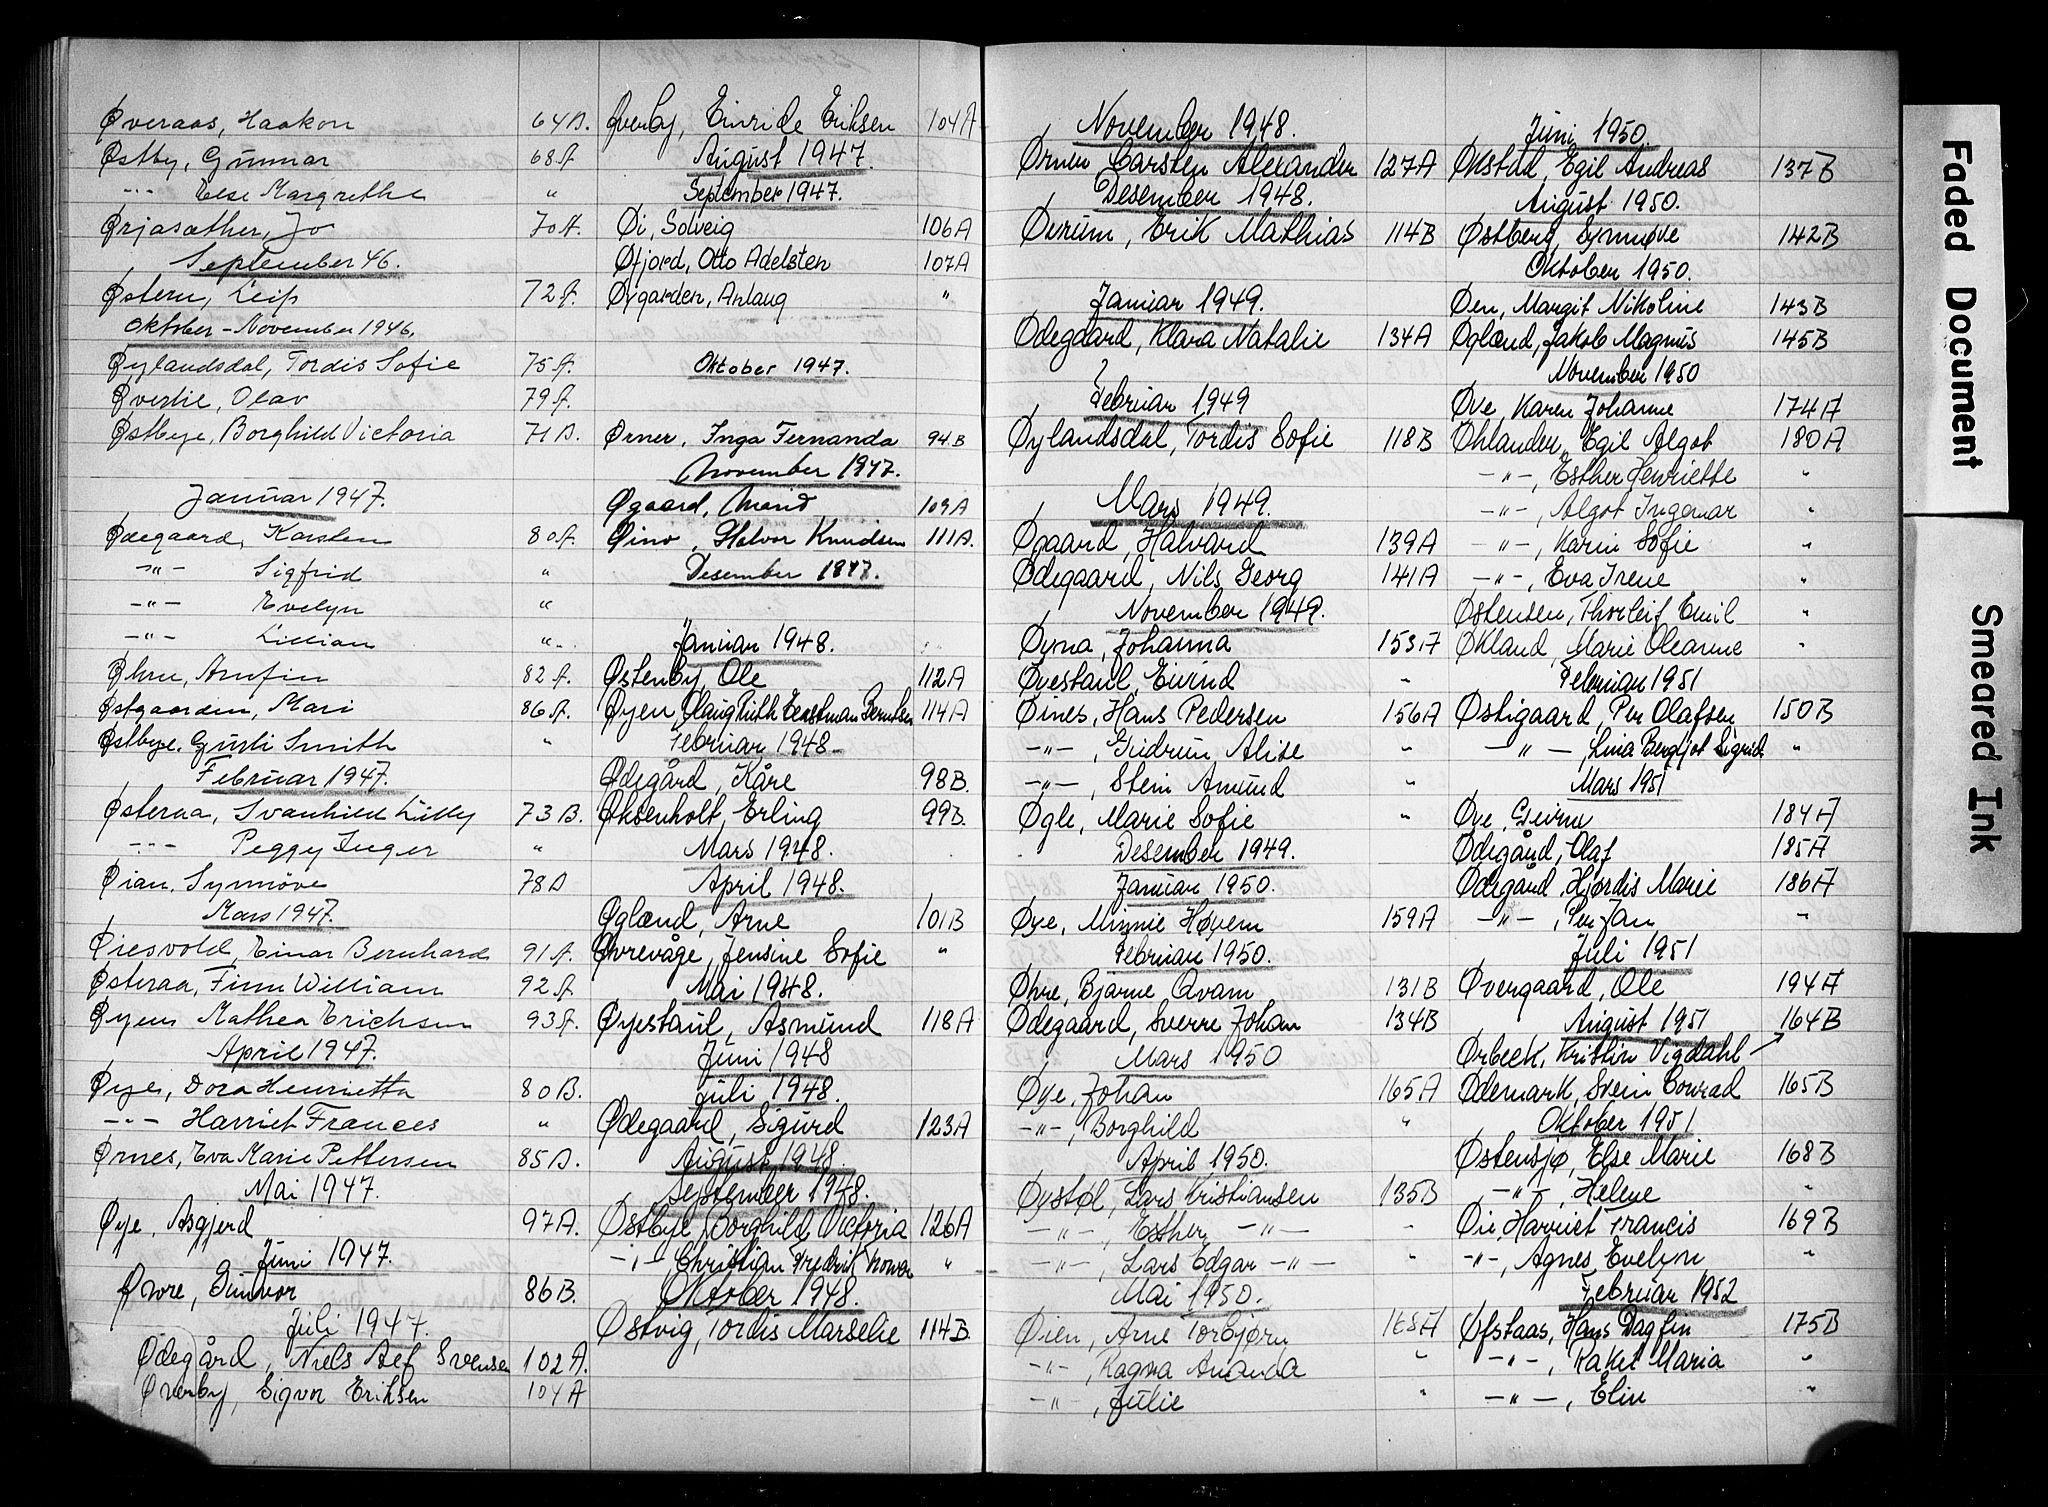 Øveraas, Haakon 64B.
Østby, Gunnar 68A.
-"- Else Margrethe "
Ørjasæther, Jo 70A.
September 46.
Østern, Leif 72A.
Oktober - November 1946.
Øylandsdal, Tordis Sofie 75A.
Øverlie, Olav 79A.
Østbye, Borghild Victoria 71B.
Januar 1947.
Ødegaard, Karsten 80A.
-"- Sigfrid "
-"- Evelyn "
-"- Lillian "
Øhrn, Arnfin 82A.
Østgaarden, Mari 86A.
Østbye, Gusti Smith "
Februar 1947.
Østeraa, Svanhild Lilly 73B.
-"- Peggy Inger "
Øian, Synnöve 78B
Mars 1947.
Øiesvold, Einar Bernhard 91A.
Østeraa, Finn William 92A.
Øyen, Mathea Erichsen 93A.
April 1947.
Øye, Dora Henrietta 80B.
-"- Harriet Frances "
Ørnes, Eva Marie Pettersen 85B.
Mai 1947.
Øye, Asgjerd 97A.
Juni 1947.
Øvre, Gunvor 86B.
Juli 1947.
Ødegård, Niels Alf Svensen 102A.
Øverby, Sigvor Eriksen 104A
Øverby, Einride Eriksen 104A
August 1947.
September 1947.
Øi, Solveig 106A
Øfjord, Otto Adelsten 107A
Øygarden, Anlaug "
Oktober 1947.
Ørner, Inga Fernanda 94B
November 1947.
Øgaard, 109A
Øino, Halvor Knudsen 111A.
Desember 1947.
Januar 1948.
Østenby, Ole 112A
Øyen, Olaug Ruth Berntsen 114A
Februar 1948.
Ødegård, Kåre 98B.
Øksenholt, Erling 99B.
Mars 1948.
April 1948.
Øglænd, Arne 101B
Øvrevåge, Jensine Sofie "
Mai 1948.
Øyestaul, Asmund 118A
Juni 1948
Juli 1948.
Ødegaard, Sigurd 123A
August 1948.
September 1948.
Østbye, Borghild Victoria 126A
-"-, Christian Fredrik "
Oktober 1948.
Østvig, Tordis Marselie 114B.
November 1948.
Ørnen Carsten Alexander 127A
Desember 1948.
Øvrum, Erik Mathias 114B
Januar 1949.
Ødegaard, Klara Natalie 134A
Februar 1949
Øylandsdal, Tordis Sofie 118B
Mars 1949.
Øgaard, Halvard 139A
Ødegaard, Nils Georg 141A
November 1949.
Øyna, Johanna 153A
Øyestaul, Eivind "
Øines, Hans Pedersen 156A
-"-, Gudrun Alise "
-"-, Stein Amund "
Øgle, Marie Sofie "
Desember 1949.
Januar 1950.
Øye, Minnie Høyem 159A
Februar 1950.
Øhre, Bjarne Qvam 131B
Ødegaard, Sverre Johan 134B
Mars 1950
Øye, Johan 165A
-"-, Borghild "
April 1950.
Øystøl, Lars Kristiansen 135B
-"-, Esther -"- "
-"-, Lars Edgar -"- "
Mai 1950.
Øien, Arne Torbjørn 168A
-"-, Ragna Amanda "
-"-, Julie "
Juni 1950.
Økstad, Egil Andreas 137B
August 1950.
Østberg, Synnøve 142B
Oktober 1950.
Øen, Margit Nikoline 143B
Øglænd, Jakob Magnus 145B
November 1950
Øve, Karen Johanne 174A
Øhlander, Egil Algot 180A
-"-, Esther Henriette "
-"-, Algot Ingemar "
-"-, Karin Sofie "
-"-, Eva Irene "
Østensen, Thorleif Emil "
Økland, Marie Oleanne "
Februar 1951
Østigaard, Per Olafsen 150B
-"-, Lina Bergljot Sigrid "
Mars 1951
Øve, 184A
Ødegård, Olaf 185A
Ødegård, Hjørdis Marie 186A
-"-, Per Jan "
Juli 1951
Øvergaard, Ole 194A
August 1951 164B
Ørbeck, Kristlin Vigdahl
Ødemark, Svein Conrad 165B
Oktober 1951
Østensjø, Else Marie 168B
-"-, Helene "
Øie, Harriet Francis 169B
-"-, Agnes Evelyn "
Februar 1952
Øfstaas, Hans Dagfin 175B
-"-, Rakel Maria "
-"-, Elin "
Faded Document
Smeared Ink